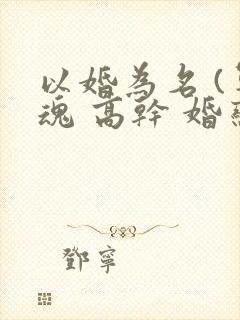 以婚為名(
魂 高幹 婚
鄧寧